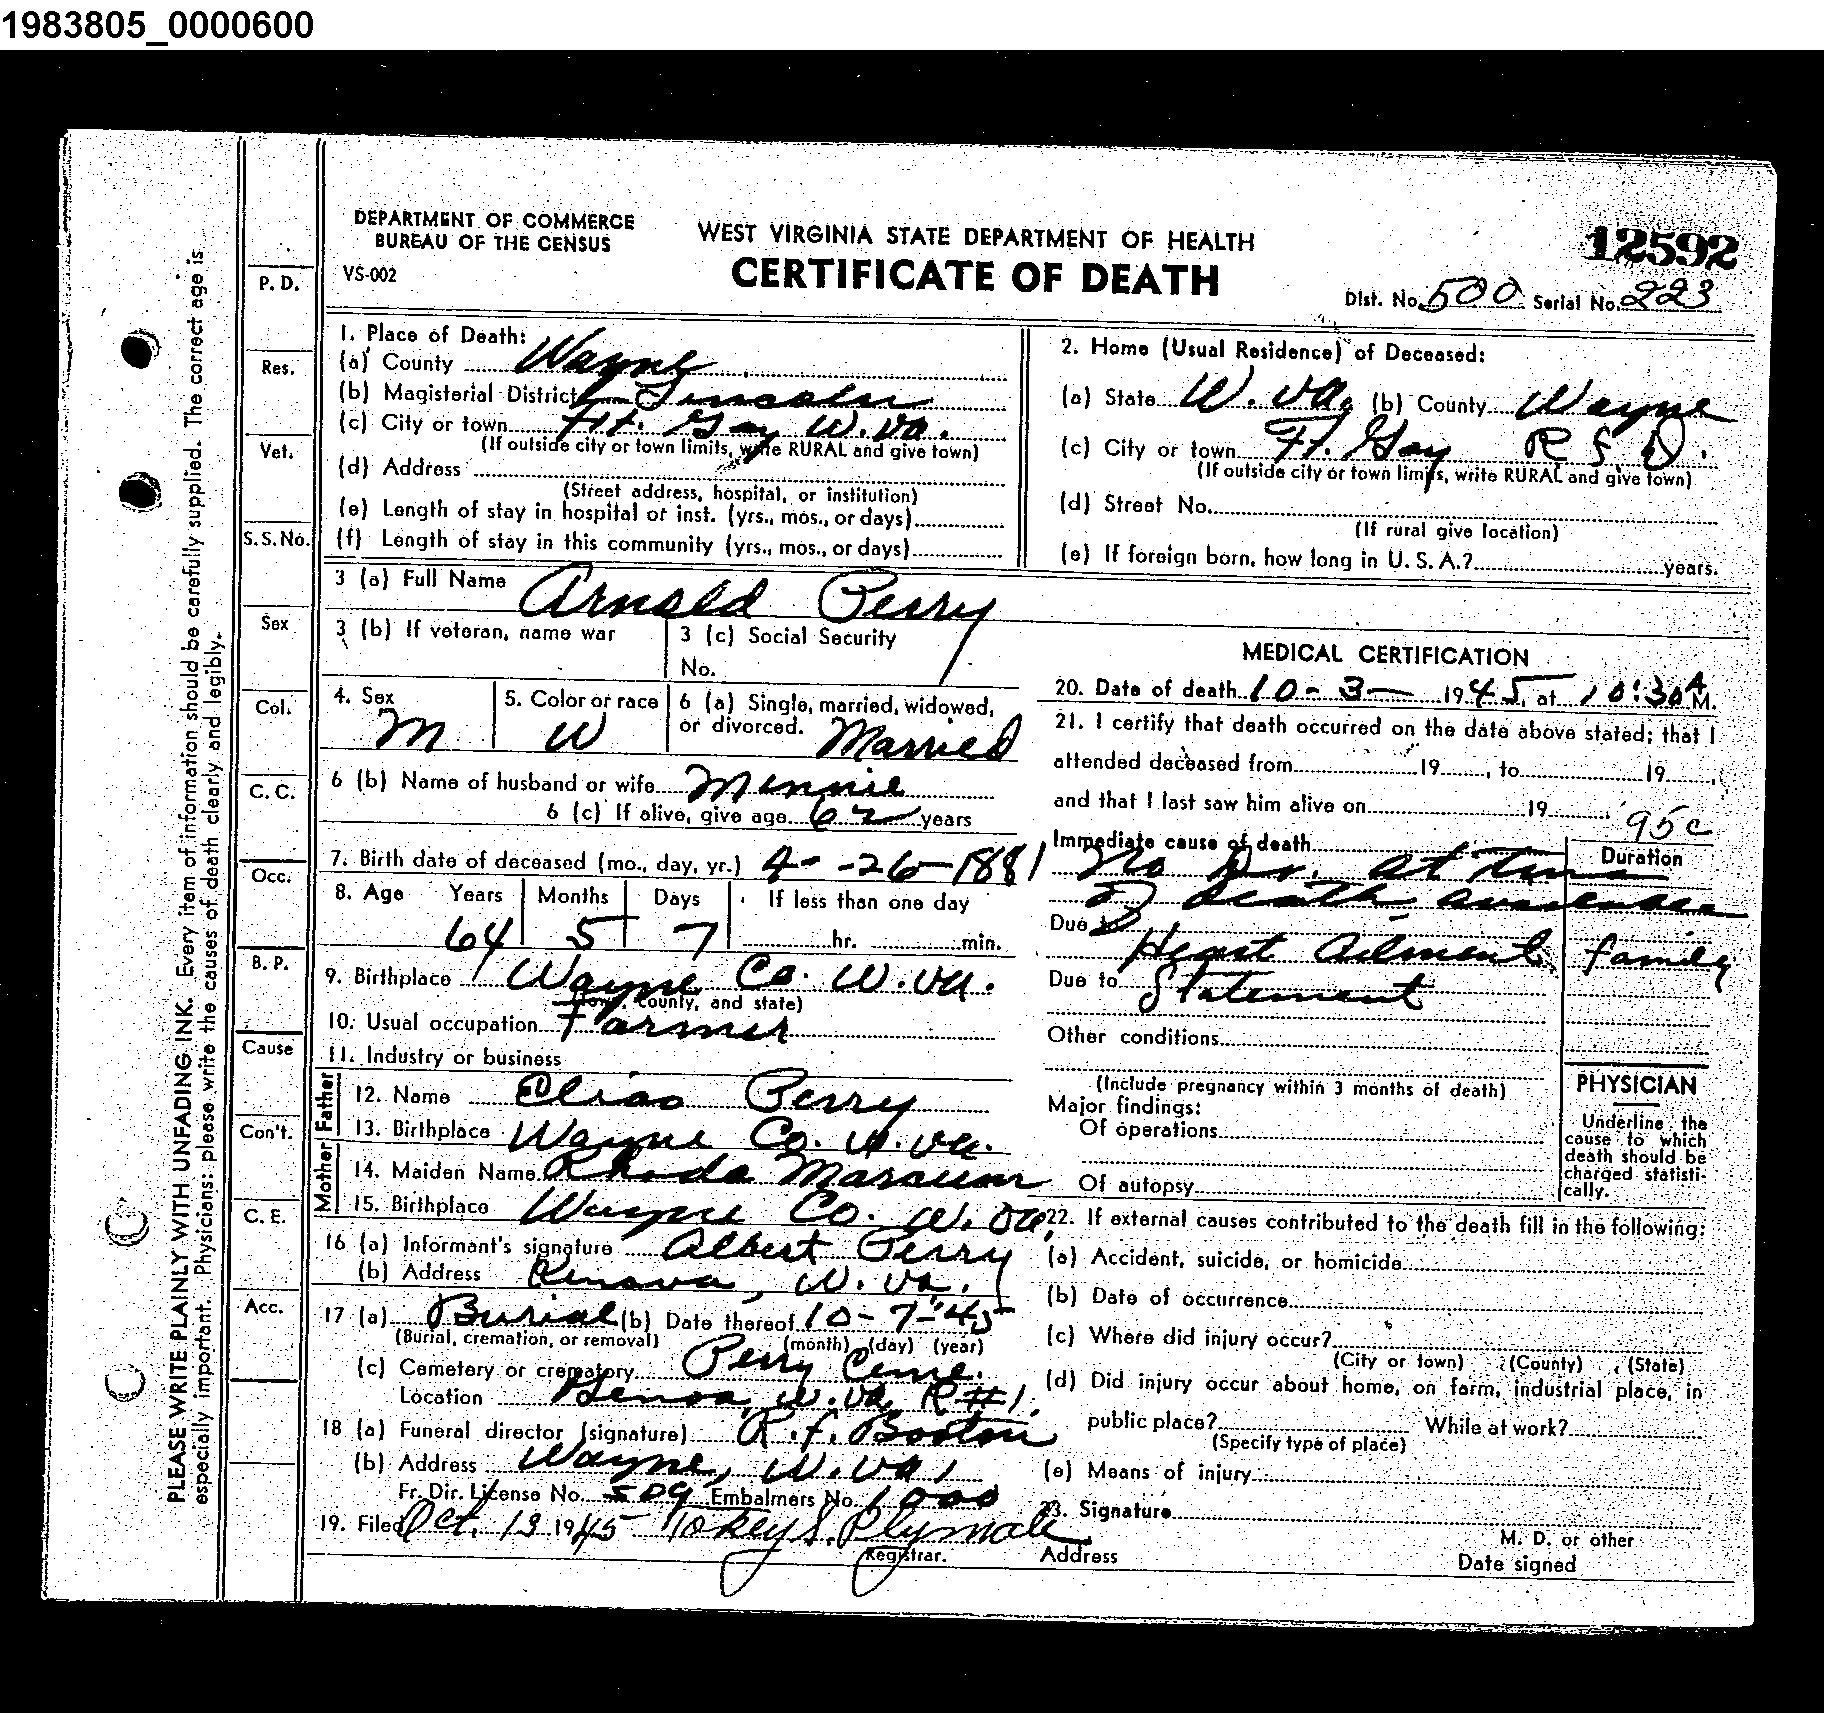 1983805_0000600
DEPARTMENT OF COMMERCE
BUREAU OF THE CENSUS
VS-002
WEST VIRGINIA STATE DEPARTMENT OF HEALTH
CERTIFICATE OF DEATH
12592
Dist. No. 500 Serial No. 223
PLEASE WRITE PLAINLY WITH UNFADING INK. Every item of information should be carefully supplied. The correct age is
especially important. Physicians: please write the causes of death clearly and legibly.
P. D.
Res.
Vet.
S. S. No.
Sex
Col.
C. C.
Occ.
B. P.
Cause
Con't.
C. E.
Acc.
1. Place of Death:
(a) County Wayne
(b) Magisterial District Lincoln
(c) City or town Ft. Gay W. Va.
(If outside city or town limits, write RURAL and give town)
(d) Address
(Street address, hospital, or institution)
(e) Length of stay in hospital or inst. (yrs., mos., or days)
(f) Length of stay in this community (yrs., mos., or days)
2. Home (Usual Residence) of Deceased:
(a) State W. Va. (b) County Wayne
(c) City or town Ft. Gay R F D.
(If outside city or town limits, write RURAL and give town)
(d) Street No.
(If rural give location)
(e) If foreign born, how long in U. S. A.? years.
3 (a) Full Name Arnold Perry
3 (b) If veteran, name war
3 (c) Social Security
No.
4. Sex M
5. Color or race W
6 (a) Single, married, widowed,
or divorced. Married
6 (b) Name of husband or wife Minnie
6 (c) If alive, give age 62 years
7. Birth date of deceased (mo., day, yr.) 4- -26-1881
8. Age Years Months Days If less than one day
64 5 7 hr. min.
9. Birthplace Wayne Co. W. Va.
(Town, county, and state)
10. Usual occupation Farmer
11. Industry or business
Father
12. Name Elias Perry
13. Birthplace Wayne Co. W. Va.
Mother
14. Maiden Name Rhoda Marcum
15. Birthplace Wayne Co. W. Va.
16 (a) Informant's signature Albert Perry
(b) Address Kenova, W. Va.
17 (a) Burial (b) Date thereof 10-7-45
(Burial, cremation, or removal) (month) (day) (year)
(c) Cemetery or crematory Perry Ceme.
Location Genoa, W. Va. R #1.
18 (a) Funeral director (signature) R. F. Booton
(b) Address Wayne, W. Va.
Fr. Dir. License No. 509 Embalmers No. 1000
19. Filed Oct. 13 1945 Tokey S. Plymale
Registrar.
MEDICAL CERTIFICATION
20. Date of death 10-3- 1945, at 10:30 A M.
21. I certify that death occurred on the date above stated; that I
attended deceased from 19 , to 19 ,
and that I last saw him alive on 19
95c
Immediate cause of death Duration
No Dr. at time
of death available
Due to
Heart Ailment family
Due to Statement
Other conditions
(Include pregnancy within 3 months of death)
Major findings:
Of operations
Of autopsy
PHYSICIAN
Underline the
cause to which
death should be
charged statisti-
cally.
22. If external causes contributed to the death fill in the following:
(a) Accident, suicide, or homicide
(b) Date of occurrence
(c) Where did injury occur?
(City or town) (County) (State)
(d) Did injury occur about home, on farm, industrial place, in
public place? While at work?
(Specify type of place)
(e) Means of injury
23. Signature
M. D. or other
Address
Date signed